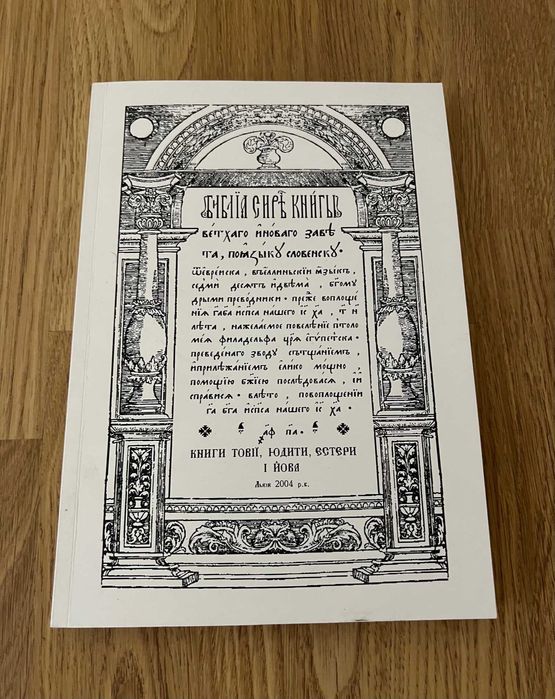 Библїа сирѣ книгы
ветхаго и новаго завѣ
та, по ѧзыку словенску·
ѿ еврейска, въ еллиньскїи ѧзыкъ,
седмь десѧт и двѣма, бг҃ому
дрыми преводники· прежⷣе воплоще
нїѧ га҃ ба҃ и сп҃са нашего іс҃ ха҃, т҃ и
лѣта, на желаемое повелѣнїе птоло
меѧ филаделфа цр҃ѧ єгѵпетска·
преведенаго зводу съ тщанїемъ,
и прилѣжанїемъ єлико мощно,
помощїю бж҃їею послѣдовасѧ, и
справисѧ· в лѣто, по воплощенїи
га҃ ба҃ и сп҃са нашего іс҃ ха҃·
҂аф па·
КНИГИ ТОВІЇ, ЮДИТИ, ЕСТЕРИ
І ЙОВА
Львів 2004 р.б.